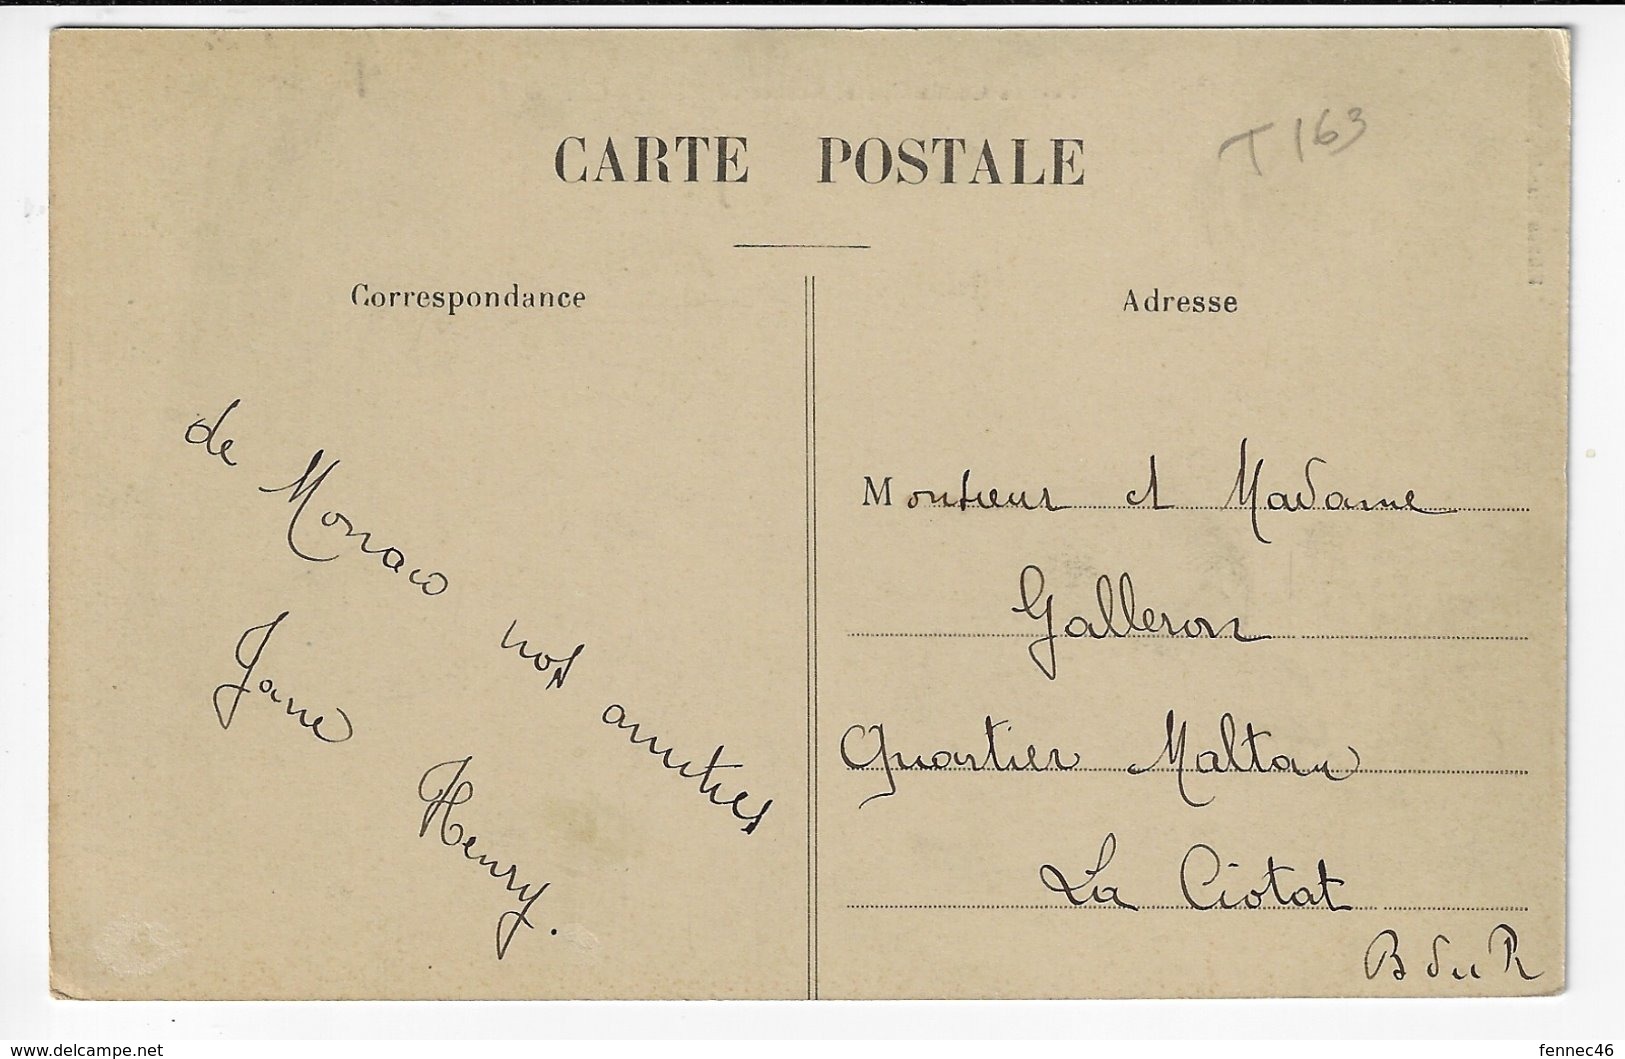 CARTE POSTALE
T 163
Correspondance
de Monaco nos amitiés
Jane Henry.
Adresse
Monsieur et Madame
Galleron
Quartier Maltau
La Ciotat
B du R
www.delcampe.net
fennec46